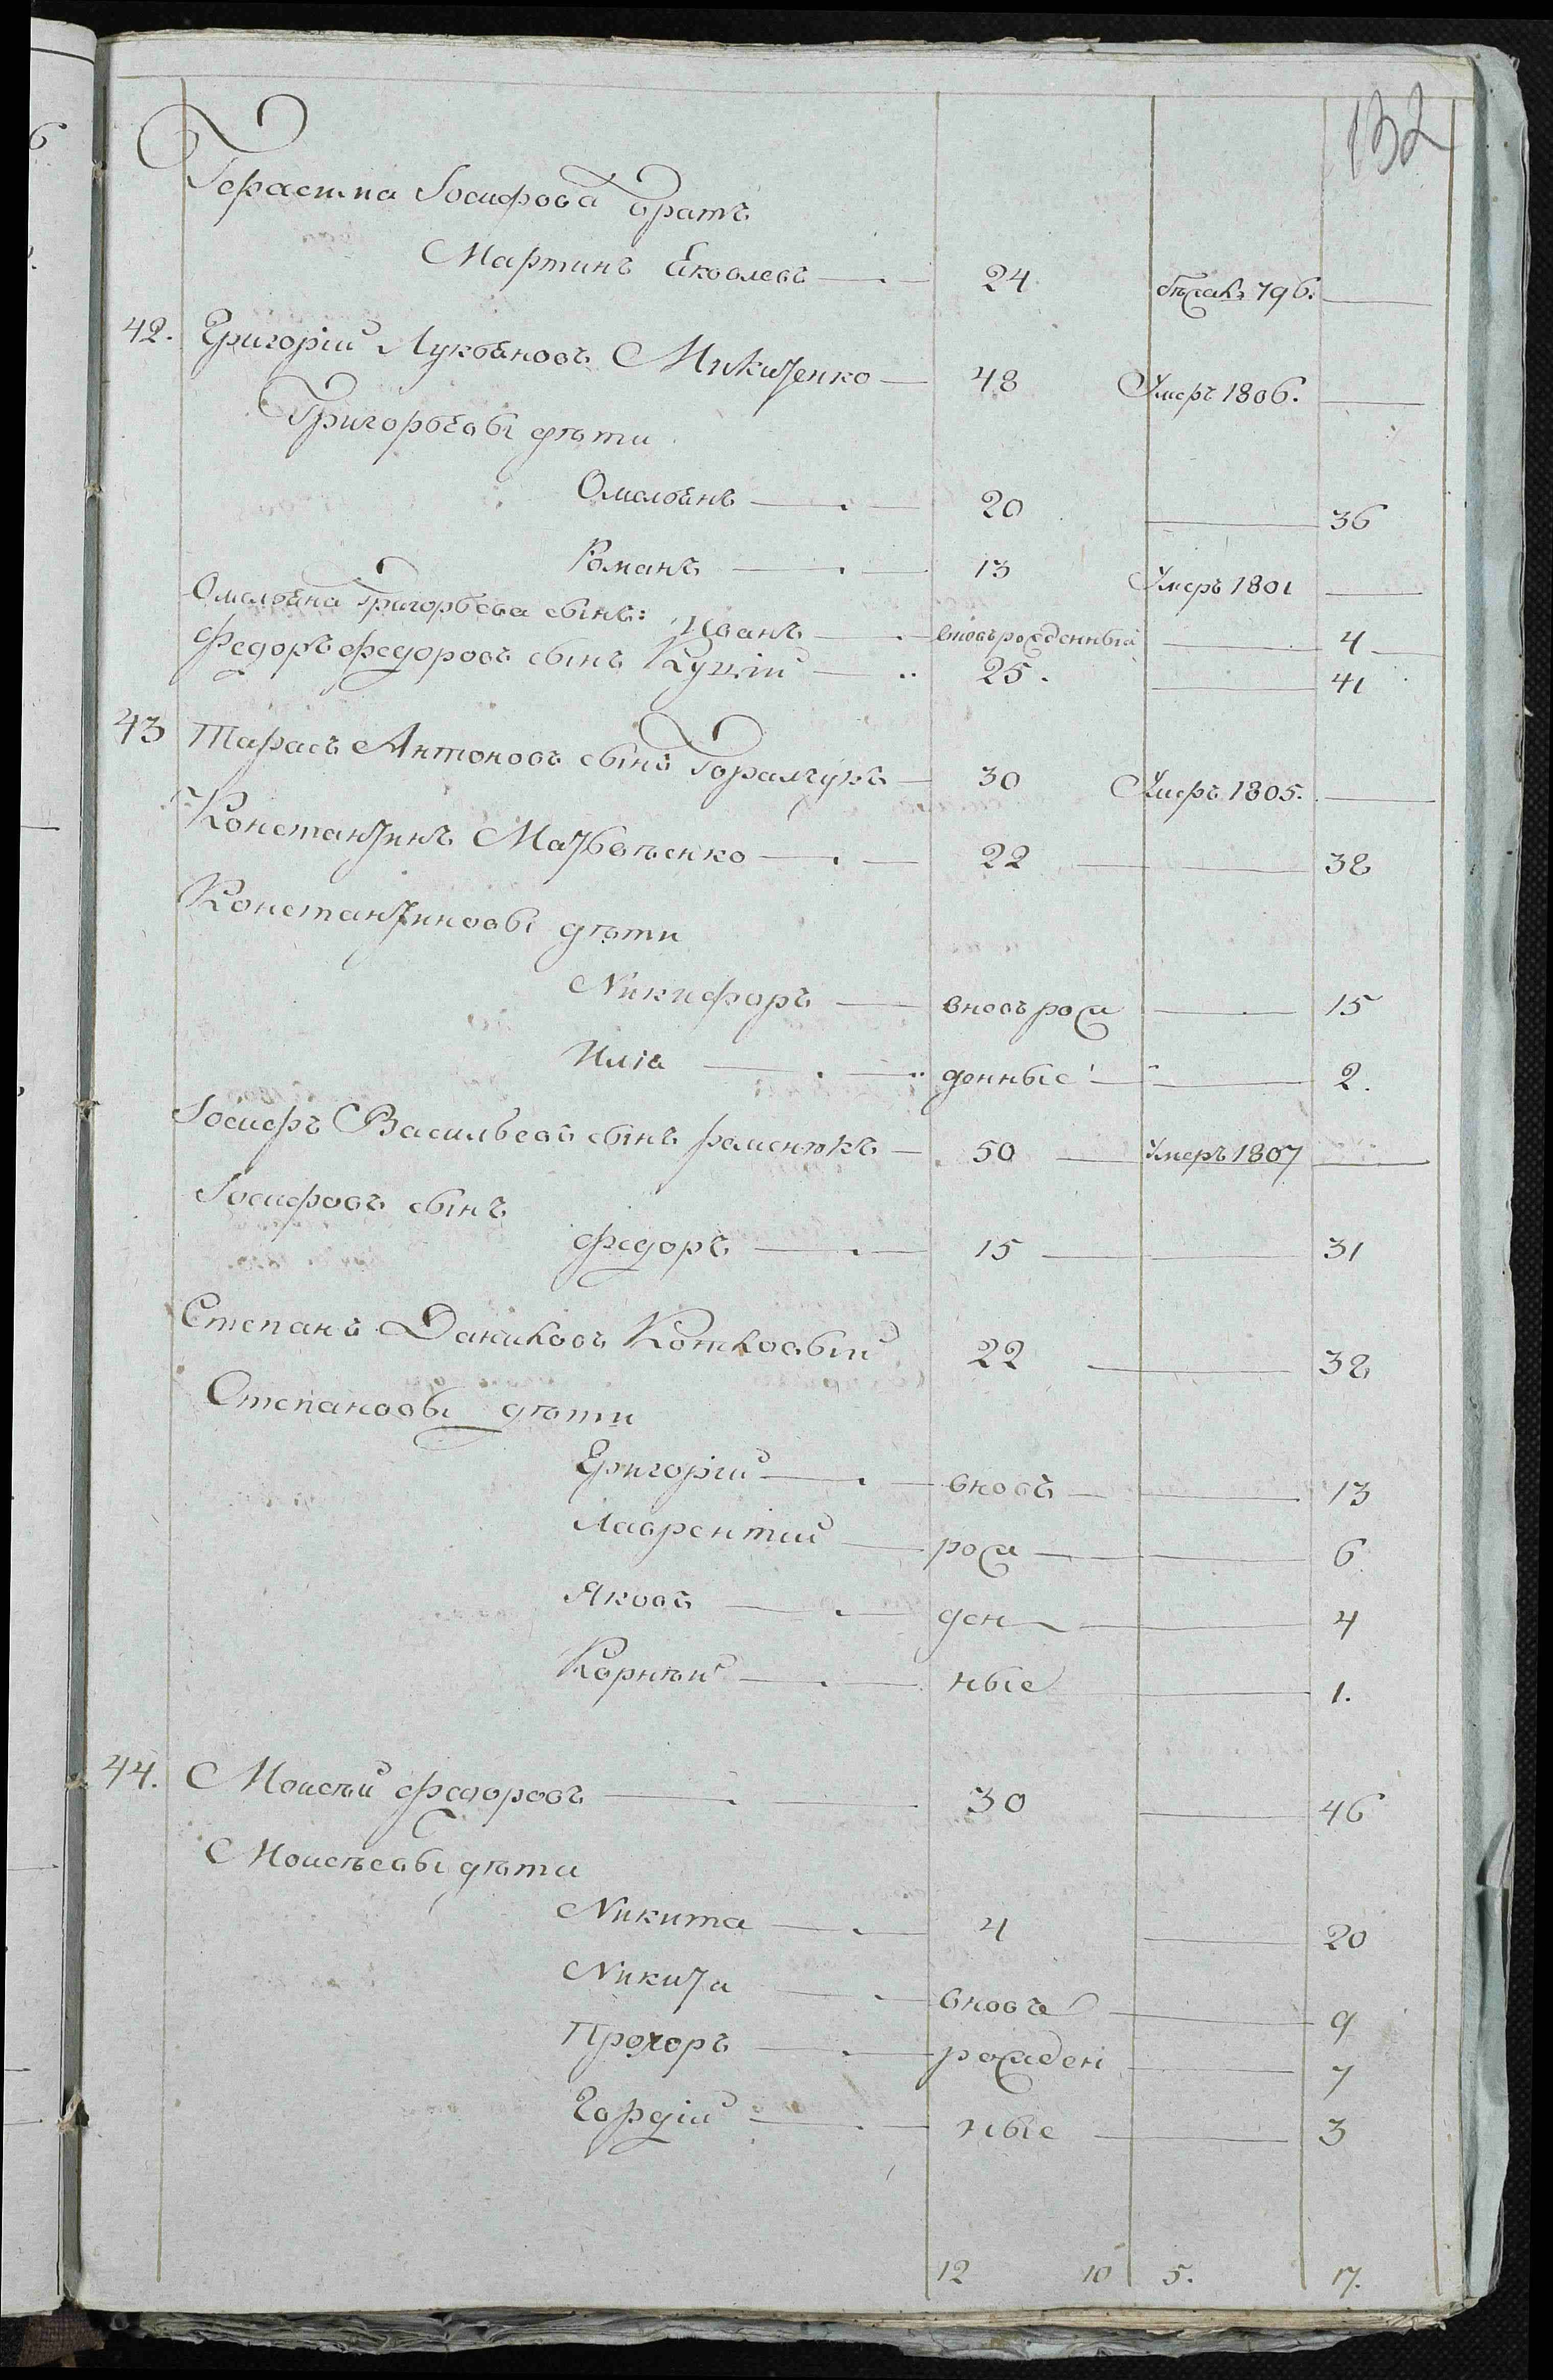 132
Герасима Іосифова братъ
Мартинъ Яковлевъ 24 бѣжалъ 796.
42. Григорій Лукьяновъ Микитенко 48 Умеръ 1806.
Григорьевы дѣти
Омельянъ 20 36
Романъ 13 Умеръ 1801
Омельяна Григорьева сынъ: Иванъ вновь рожденный 4
Федоръ Федоровъ сынъ 25. 41
43 Тарасъ Антоновъ сынъ 30 Умеръ 1805.
Константинъ Матвѣенко 22 38
Константиновы дѣти
Никифоръ вновь рож 15
Илія денные 2.
Іосифъ Васильевъ сынъ 50 Умеръ 1807
Іосифовъ сынъ
Федоръ 15 31
Степанъ Даниловъ 22 38
Степановы дѣти
Григорій вновь 13
Лаврентий рож 6
Яковъ ден 4
Корнѣй ные 1.
44. Моисѣй Федоровъ 30 46
Моисѣевы дѣти
Никита 4 20
Никита вновь 9
Прохоръ рожден 7
Гордій ные 3
12 10 5. 17.